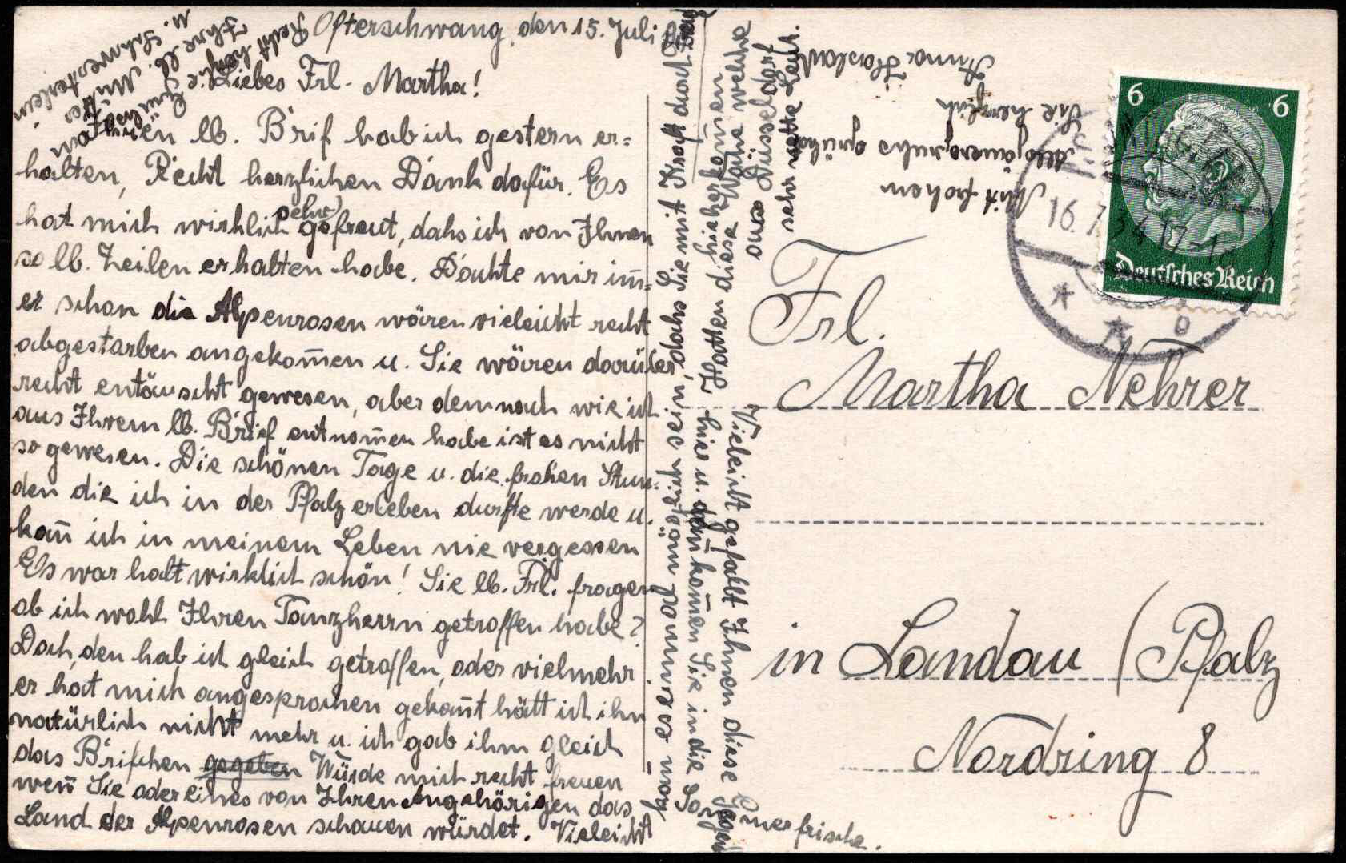 Ofterschwang, den 15. Juli
Liebes Frl. Martha!
Ihren lb. Brif hab ich gestern er=
halten, Recht herzlichen Dank dafür. Es
hat mich wirklich sehr gefreut, dahs ich von Ihnen
so lb. Zeilen erhalten habe. Dachte mir im=
er schon die Alpenrosen wären vieleicht recht
abgestarben angekom̄en u. Sie wären darüber
recht entäuscht gewesen, aber demnach wie ich
aus Ihrem lb. Brief entnom̄en habe ist es nicht
so gewesen. Die schönen Tage u. die frohen Stun=
den die ich in der Pfalz erleben durfte werde u.
kan̄ ich in meinem Leben nie vergessen
Es war halt wirklich schön! Sie lb. Frl. fragen
ob ich wohl Ihren Tanzherrn getroffen habe?
Doch, den hab ich gleich getroffen, oder vielmehr
er hat mich angesprochen gekan̄t hätt ich ihn
natürlich nicht mehr u. ich gab ihm gleich
das Brifchen gegeben Würde mich recht freuen
wen̄ Sie oder eines von Ihren Angehörigen das
Land der Alpenrosen schauen würdet. Vieleicht
kan̄ es einmal möglich sein, dahs Sie mit Kraft durch
hierkom̄en
Vieleicht gefällt Ihnen diese Gegend
hier u. dan̄ kom̄en Sie in die Som̄erfrische.
Hatten diese Woche welche
aus Düsseldorf
sehr nette Leut.
Mit frohen
Allgäuergruhs grühst
Sie herzlich
Anna
Recht herzliche
Grühse
an
Ihre lb. Mutter
u. Schwesterlein
Frl.
Martha Nehrer
in Landau (Pfalz
Nordring 8
6 6
Deutsches Reich
16.7.34.17-18